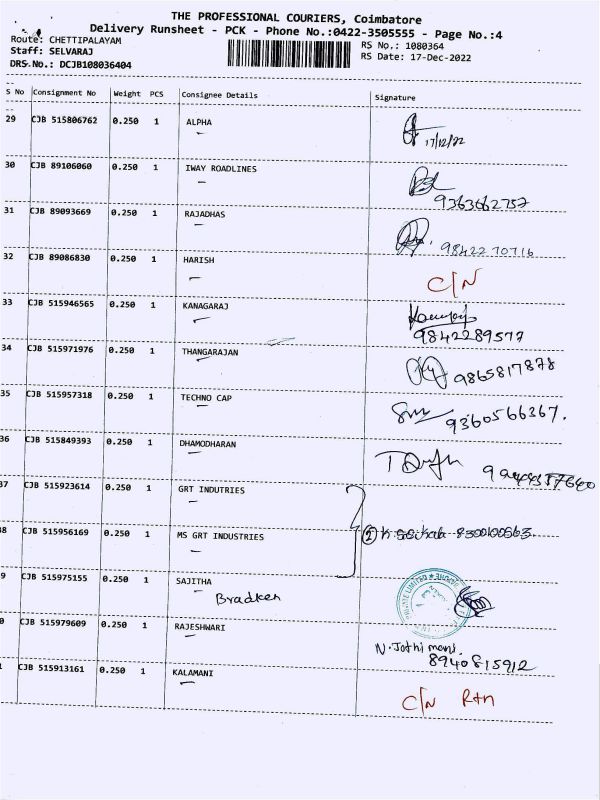 THE PROFESSIONAL COURIERS, Coimbatore
Delivery Runsheet - PCK - Phone No.:0422-3505555 - Page No.:4
Route: CHETTIPALAYAM RS No.: 1080364
Staff: SELVARAJ RS Date: 17-Dec-2022
DRS No.: DCJB108036404
S No Consignment No Weight PCS Consignee Details Signature
29 CJB 515806762 0.250 1 ALPHA
17/12/22
30 CJB 89106060 0.250 1 IWAY ROADLINES
9363662757
31 CJB 89093669 0.250 1 RAJADHAS
9842270716
32 CJB 89086830 0.250 1 HARISH
C/N
33 CJB 515946565 0.250 1 KANAGARAJ
9842289577
34 CJB 515971976 0.250 1 THANGARAJAN
9865817878
35 CJB 515957318 0.250 1 TECHNO CAP
9360566367.
36 CJB 515849393 0.250 1 DHAMODHARAN
37 CJB 515923614 0.250 1 GRT INDUTRIES
8 CJB 515956169 0.250 1 MS GRT INDUSTRIES
9 CJB 515975155 0.250 1 SAJITHA
Bradken
0 CJB 515979609 0.250 1 RAJESHWARI
N. Jothi mani.
8940815912
1 CJB 515913161 0.250 1 KALAMANI
C/N Rtn